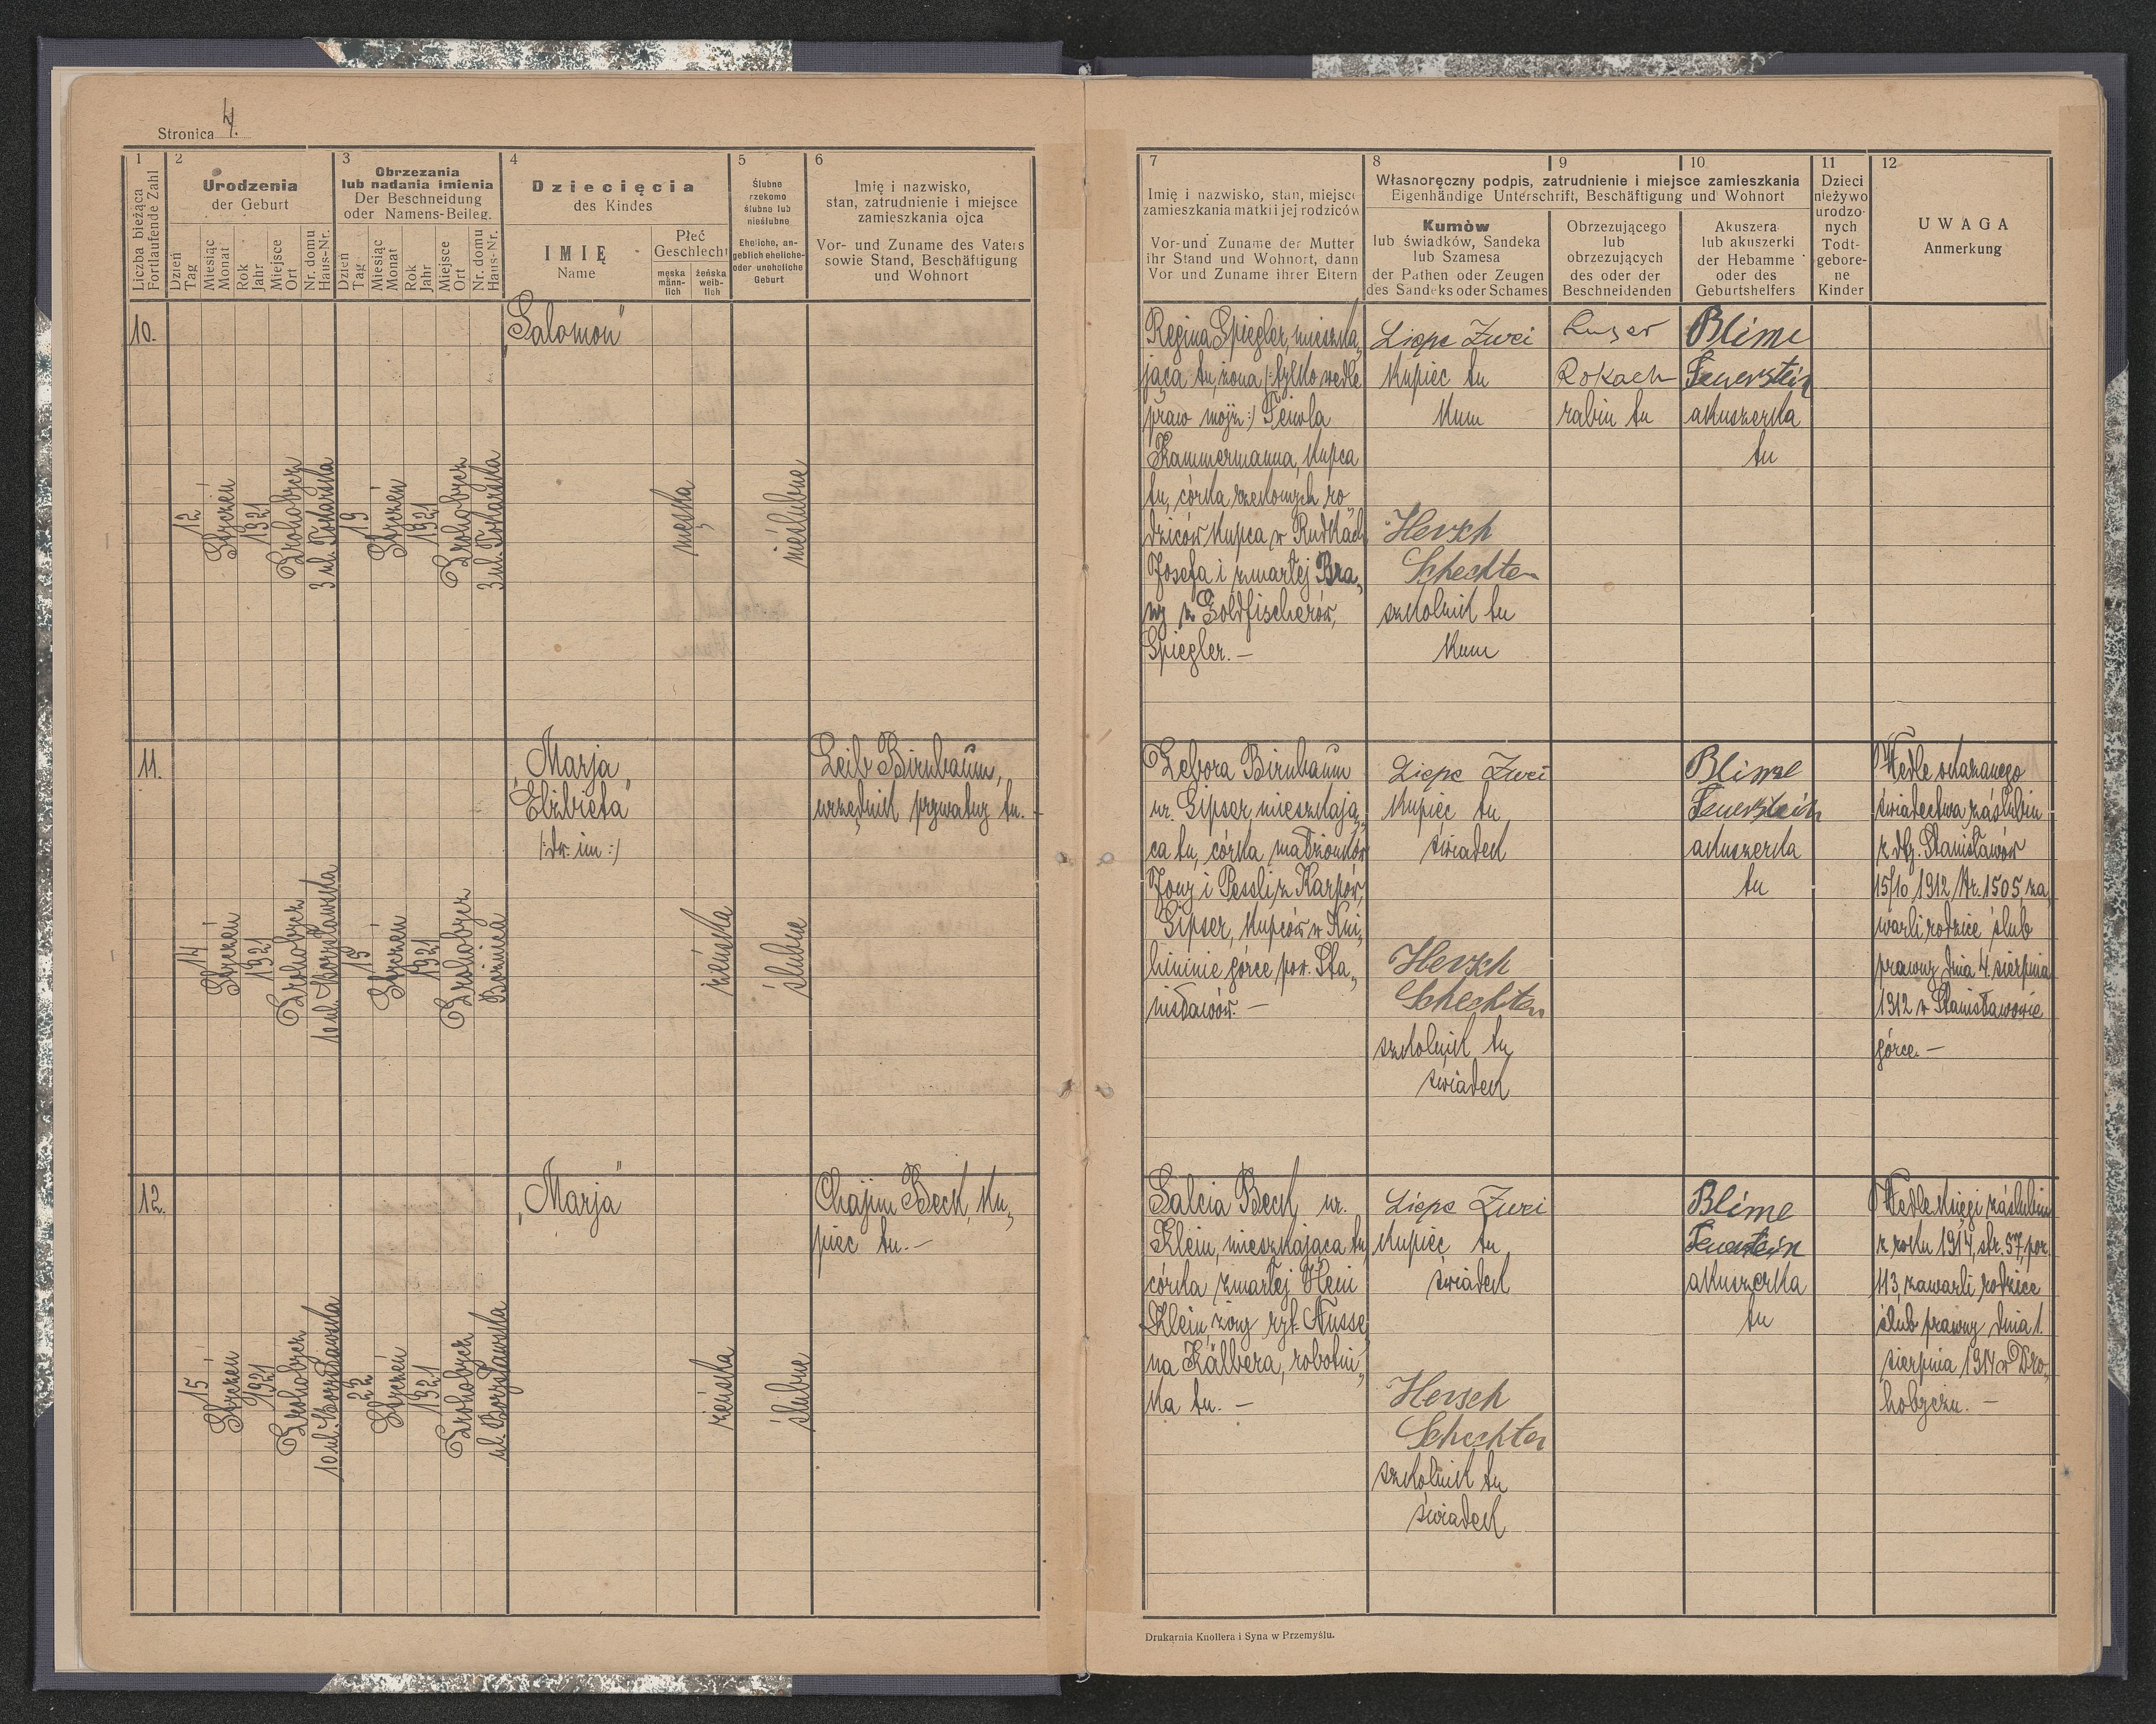 Stronica 4.
1
Liczba bieżąca
Fortlaufende Zahl
2
Urodzenia
der Geburt
Dzień
Tag
Miesiąc
Monat
Rok
Jahr
Miejsce
Ort
Nr. domu
Haus-Nr.
3
Obrzezania
lub nadania imienia
Der Beschneidung
oder Namens-Beileg.
Dzień
Tag
Miesiąc
Monat
Rok
Jahr
Miejsce
Ort
Nr. domu
Haus-Nr.
4
Dziecięcia
des Kindes
IMIĘ
Name
Płeć
Geschlecht
męska
männ-
lich
żeńska
weib-
lich
5
Ślubne
rzekomo
ślubne lub
nieślubne
Eheliche, an-
geblich eheliche-
oder uneheliche
Geburt
6
Imię i nazwisko,
stan, zatrudnienie i miejsce
zamieszkania ojca
Vor- und Zuname des Vaters
sowie Stand, Beschäftigung
und Wohnort
7
Imię i nazwisko, stan, miejsce
zamieszkania matki i jej rodziców
Vor-und Zuname der Mutter
ihr Stand und Wohnort, dann
Vor und Zuname ihrer Eltern
8
9
10
Własnoręczny podpis, zatrudnienie i miejsce zamieszkania
Eigenhändige Unterschrift, Beschäftigung und Wohnort
Kumów
lub świadków, Sandeka
lub Szamesa
der Pathen oder Zeugen
des Sandeks oder Schames
Obrzezującego
lub
obrzezujących
des oder der
Beschneidenden
Akuszera
lub akuszerki
der Hebamme
oder des
Geburtshelfers
11
Dzieci
nieżywo
urodzo-
nych
Todt-
gebore-
ne
Kinder
12
UWAGA
Anmerkung
10.
12
Styczeń
1921
Drohobycz
3 ul.
19
Styczeń
1921
Drohobycz
3 ul.
„Salomon"
męska
nieślubne
Regina Spiegler, mieszka„
jąca tu, żona /:tylko wedle
praw mojż:/ Feiwla
Kammermanna, kupca
tu, córka rzekomych ro„
dziców kupca w Rudkach
Josefa i zmarłej Bra„
ny z Goldfischerów,
Spiegler.—
Liepe Zwei
kupiec tu
kum
Hersch
Schechter
szkolnik tu
kum
Luzer
Rokach
rabin tu
Blime
Feuerstein
akuszerka
tu
11.
14
Styczeń
1921
Drohobycz
10 ul. Borysławska
15
Styczeń
1921
Drohobycz
Bożnica
„Marja
Elżbieta"
/:dw. im:/
żeńska
ślubne
Leib Birnbaum,
urzędnik prywatny tu.—
Debora Birnbaum
ur. Gipser mieszkają„
ca tu, córka małżonków
Jony i Pessli z Karpów,
Gipser, kupców w Kni„
hininie górce pow. Sta„
nisławów.—
Liepe Zwei
kupiec tu
świadek
Hersch
Schechter
szkolnik tu
świadek
Blime
Feuerstein
akuszerka
tu
Wedle okazanego
świadectwa zaślubin
z dty. Stanisławów
15/10 1912 Nr. 1505, za„
warli rodzice ślub
prawny dnia 4. sierpnia
1912 w Stanisławowie
górce.—
12.
15
Styczeń
1921
Drohobycz
10 ul. Borysławska
22
Styczeń
1921
Drohobycz
ul. Borysławska
„Marja"
żeńska
ślubne
Chajim Beck, ku„
piec tu.—
Salcia Beck ur.
Klein, mieszkająca tu,
córka zmarłej Heni
Klein, żony ryt. Nusse„
na Kälbera, robotni„
ka tu.—
Liepe Zwei
kupiec tu
świadek
Hersch
Schechter
szkolnik tu
świadek
Blime
Feuerstein
akuszerka
tu
Wedle księgi zaślubin
z roku 1914, str. 57, poz.
113, zawarli rodzice
ślub prawny dnia 1.
sierpnia 1914 w Dro„
hobyczu.—
Drukarnia Knollera i Syna w Przemyślu.